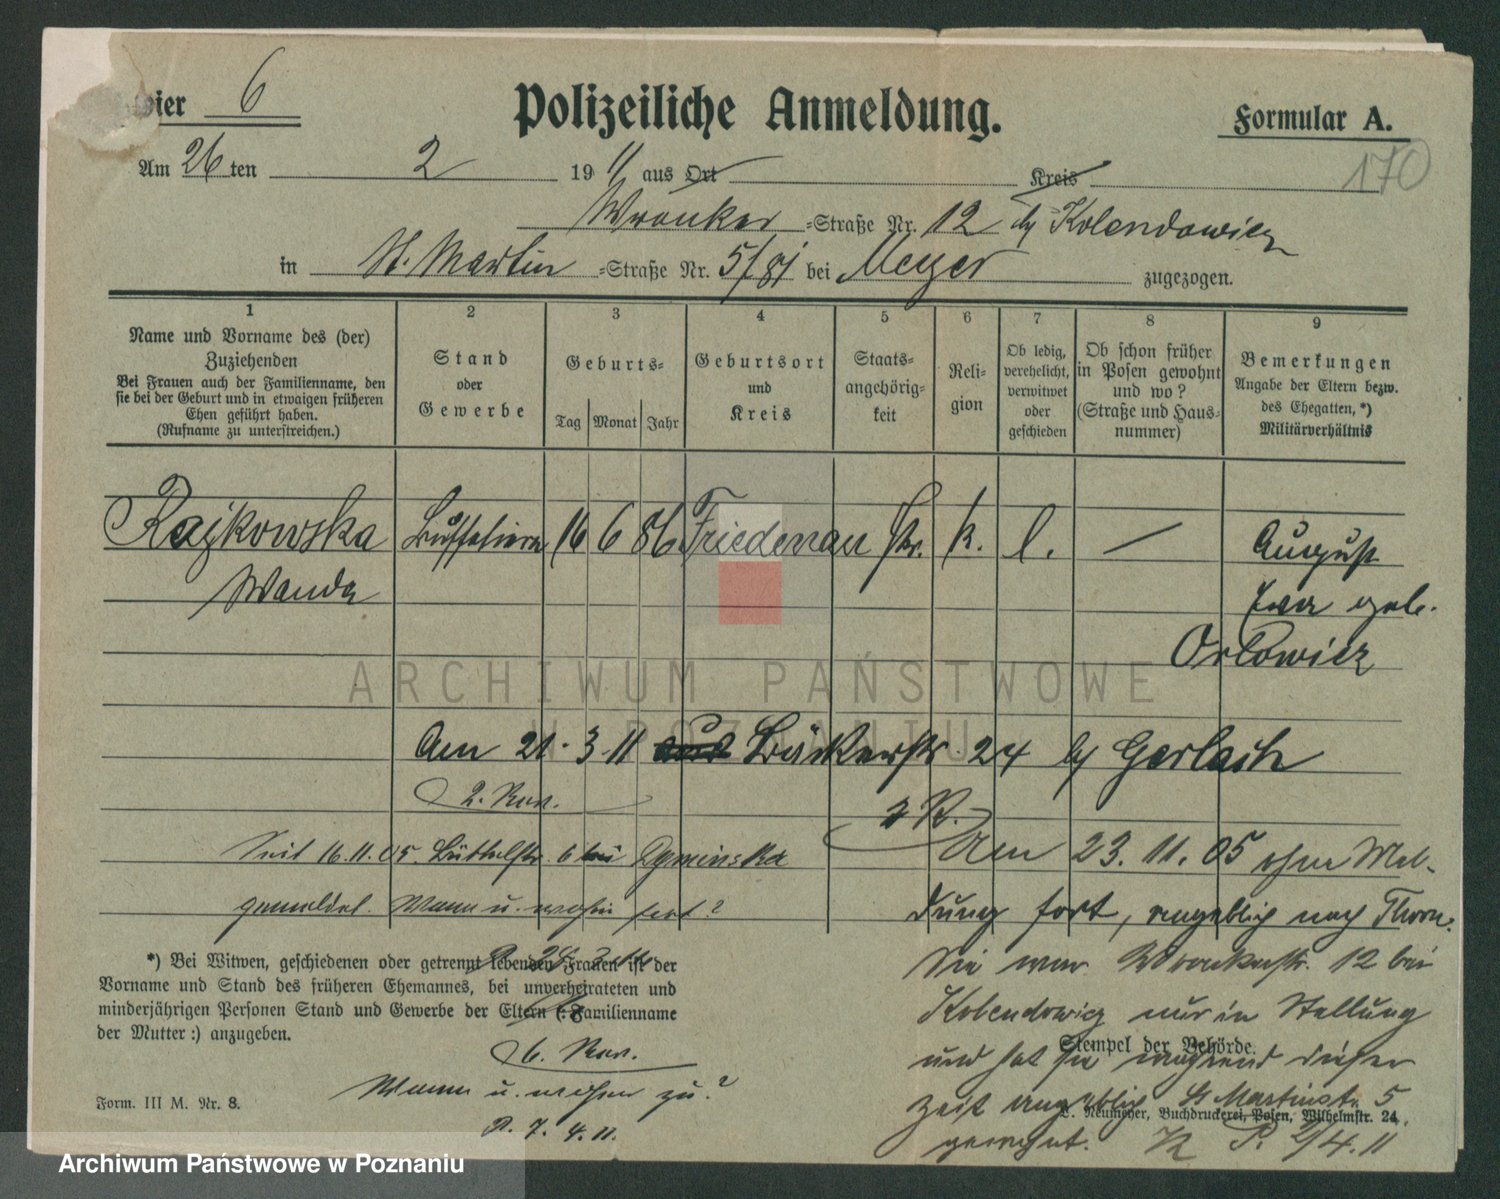 vier 6
Polizeiliche Anmeldung.
Formular A.
170
Am 26 ten 2 1911 aus Ort Kreis
Wronker -Straße Nr. 12 by Kolendowicz
in St. Martin -Straße Nr. 5/8I bei Meyer zugezogen.
1 2 3 4 5 6 7 8 9
Name und Vorname des (der)
Zuziehenden
Bei Frauen auch der Familienname, den
sie bei der Geburt und in etwaigen früheren
Ehen geführt haben.
(Rufname zu unterstreichen.)
Stand
oder
Gewerbe
Geburts-
Tag Monat Jahr
Geburtsort
und
Kreis
Staats-
angehörig-
keit
Reli-
gion
Ob ledig,
verehelicht,
verwitwet
oder
geschieden
Ob schon früher
in Posen gewohnt
und wo?
(Straße und Haus-
nummer)
Bemerkungen
Angabe der Eltern bezw.
des Ehegatten, *)
Militärverhältnis
Rajkowska Buffetiere 16 6 86 Friedenau Pr. k. l. — August
Wanda Ewa geb.
Orłowicz
ARCHIWUM PAŃSTWOWE
W POZNANIU
Am 21. 3. 11 Bäckerstr. 24 by Gerlach
2. Rev.
2 R.
Seit 16.11.05. Büttelstr. 6 bei Dyminska
gemeldet. Wann u. wohin fort?
Am 23. 11. 05 ohne Mel-
dung fort, angeblich nach Thorn.
Sie war Wronkerstr. 12 bei
Kolendowicz nur in Stellung
und hat sie während dieser
Zeit angeblich St Martinstr. 5
gewohnt. P. 2/4. 11
*) Bei Witwen, geschiedenen oder getrennt lebenden Frauen ist der
Vorname und Stand des früheren Ehemannes, bei unverheirateten und
minderjährigen Personen Stand und Gewerbe der Eltern (: Familienname
der Mutter :) anzugeben.
6. Rev.
Wann u. wohin zu?
P. 7. 4. 11.
Stempel der Behörde.
Form. III M. Nr. 8.
L. Neumeyer, Buchdruckerei, Posen, Wilhelmstr. 24.
Archiwum Państwowe w Poznaniu